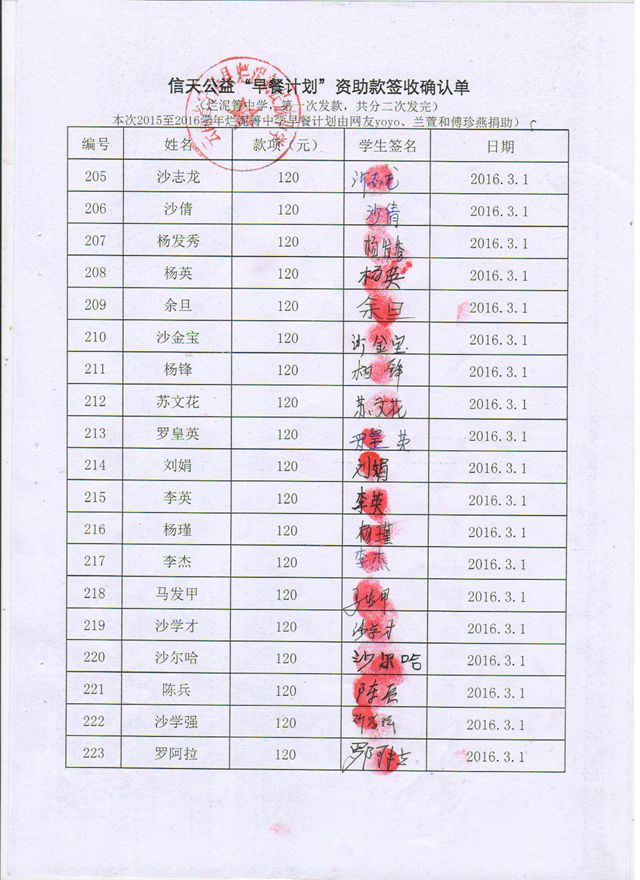 信天公益“早餐计划”资助款签收确认单
（烂泥箐中学，第一次发款，共分二次发完）
本次2015至2016学年烂泥箐中学早餐计划由网友yoyo、兰萱和傅珍燕捐助）
编号 姓名 款项（元） 学生签名 日期
205 沙志龙 120 沙志龙 2016.3.1
206 沙倩 120 沙倩 2016.3.1
207 杨发秀 120 杨发秀 2016.3.1
208 杨英 120 杨英 2016.3.1
209 余旦 120 余旦 2016.3.1
210 沙金宝 120 沙金宝 2016.3.1
211 杨锋 120 杨锋 2016.3.1
212 苏文花 120 苏文花 2016.3.1
213 罗皇英 120 罗皇英 2016.3.1
214 刘娟 120 刘娟 2016.3.1
215 李英 120 李英 2016.3.1
216 杨瑾 120 杨瑾 2016.3.1
217 李杰 120 李杰 2016.3.1
218 马发甲 120 马发甲 2016.3.1
219 沙学才 120 沙学才 2016.3.1
220 沙尔哈 120 沙尔哈 2016.3.1
221 陈兵 120 陈兵 2016.3.1
222 沙学强 120 2016.3.1
223 罗阿拉 120 罗阿拉 2016.3.1